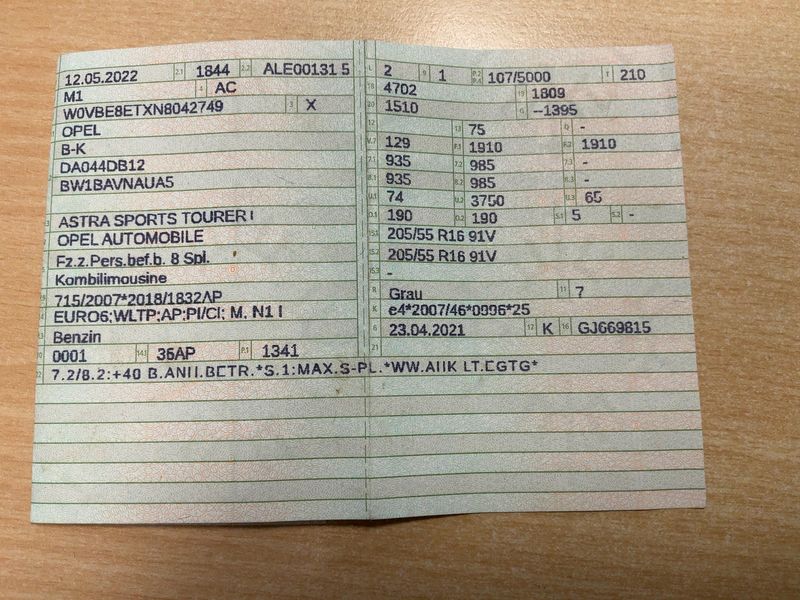 12.05.2022 2.1 1844 2.2 ALE00131 5
M1 4 AC
W0VBE8ETXN8042749 3 X
OPEL
B-K
DA044DB12
BW1BAVNAUA5
ASTRA SPORTS TOURER
OPEL AUTOMOBILE
Fz.z.Pers.bef.b. 8 Spl.
Kombilimousine
715/2007*2018/1832AP
EURO6;WLTP;AP;PI/CI; M, N1 I
Benzin
10 0001 14.1 36AP P.1 1341
22 7.2/8.2:+40 B.ANH.BETR.*S.1:MAX.S-PL.*WW.AHK LT.EGTG*
L 2 9 1 P.2 P.4 107/5000 T 210
18 4702 19 1809
20 1510 G --1395
12 13 75 Q -
V.7 129 F.1 1910 F.2 1910
7.1 935 7.2 985 7.3 -
8.1 935 8.2 985 8.3 -
U.1 74 U.2 3750 U.3 65
O.1 190 O.2 190 S.1 5 S.2 -
15.1 205/55 R16 91V
15.2 205/55 R16 91V
15.3 -
R Grau 11 7
K e4*2007/46*0996*25
6 23.04.2021 17 K 16 GJ669815
21